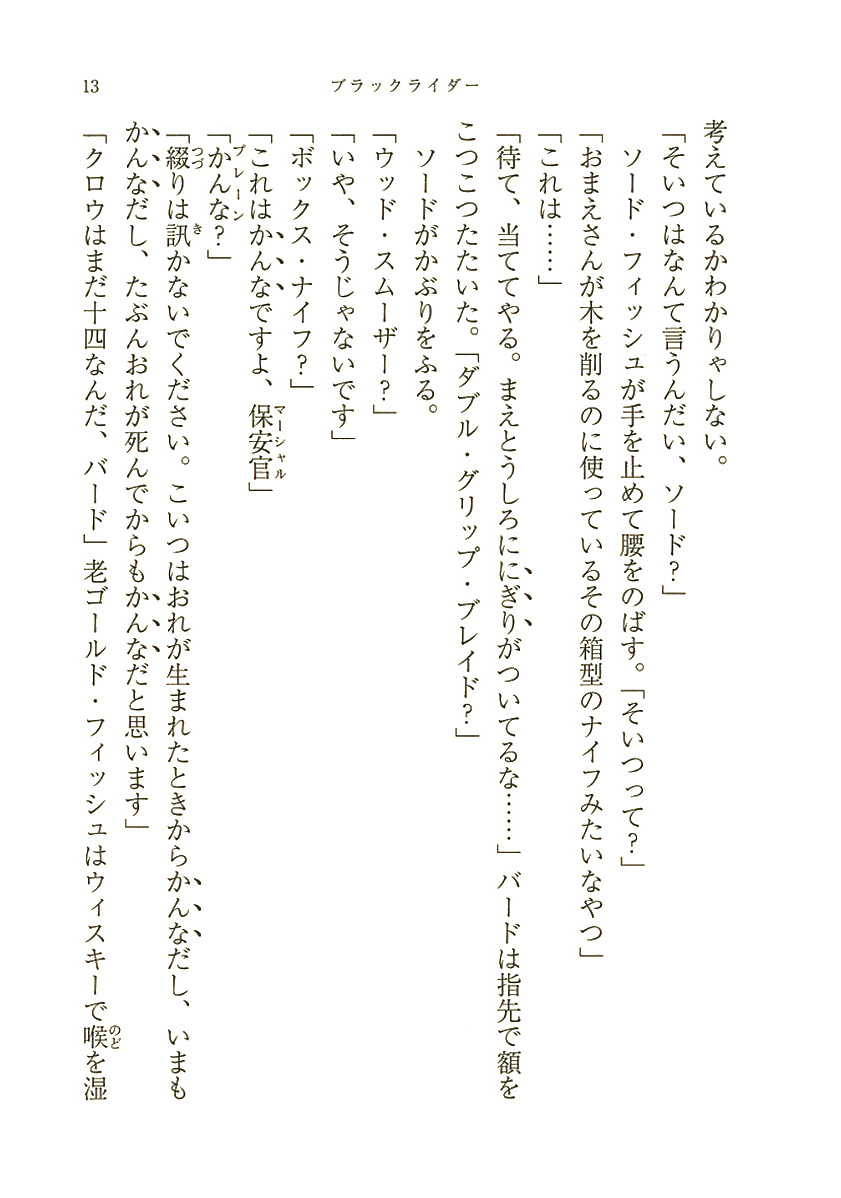 13
ブラックライダー
考えているかわかりゃしない。
「そいつはなんて言うんだい、ソード？」
ソード・フィッシュが手を止めて腰をのばす。「そいつって？」
「おまえさんが木を削るのに使っているその箱型のナイフみたいなやつ」
「これは……」
「待て、当ててやる。まえとうしろににぎりがついてるな……」バードは指先で額を
こつこつたたいた。「ダブル・グリップ・ブレイド？」
ソードがかぶりをふる。
「ウッド・スムーザー？」
「いや、そうじゃないです」
「ボックス・ナイフ？」
「これはかんなですよ、保安官」
マーシャル
「かんな？」
プレーン
「綴りは訊かないでください。こいつはおれが生まれたときからかんなだし、いまも
つづ
き
かんなだし、たぶんおれが死んでからもかんなだと思います」
「クロウはまだ十四なんだ、バード」老ゴールド・フィッシュはウィスキーで喉を湿
のど